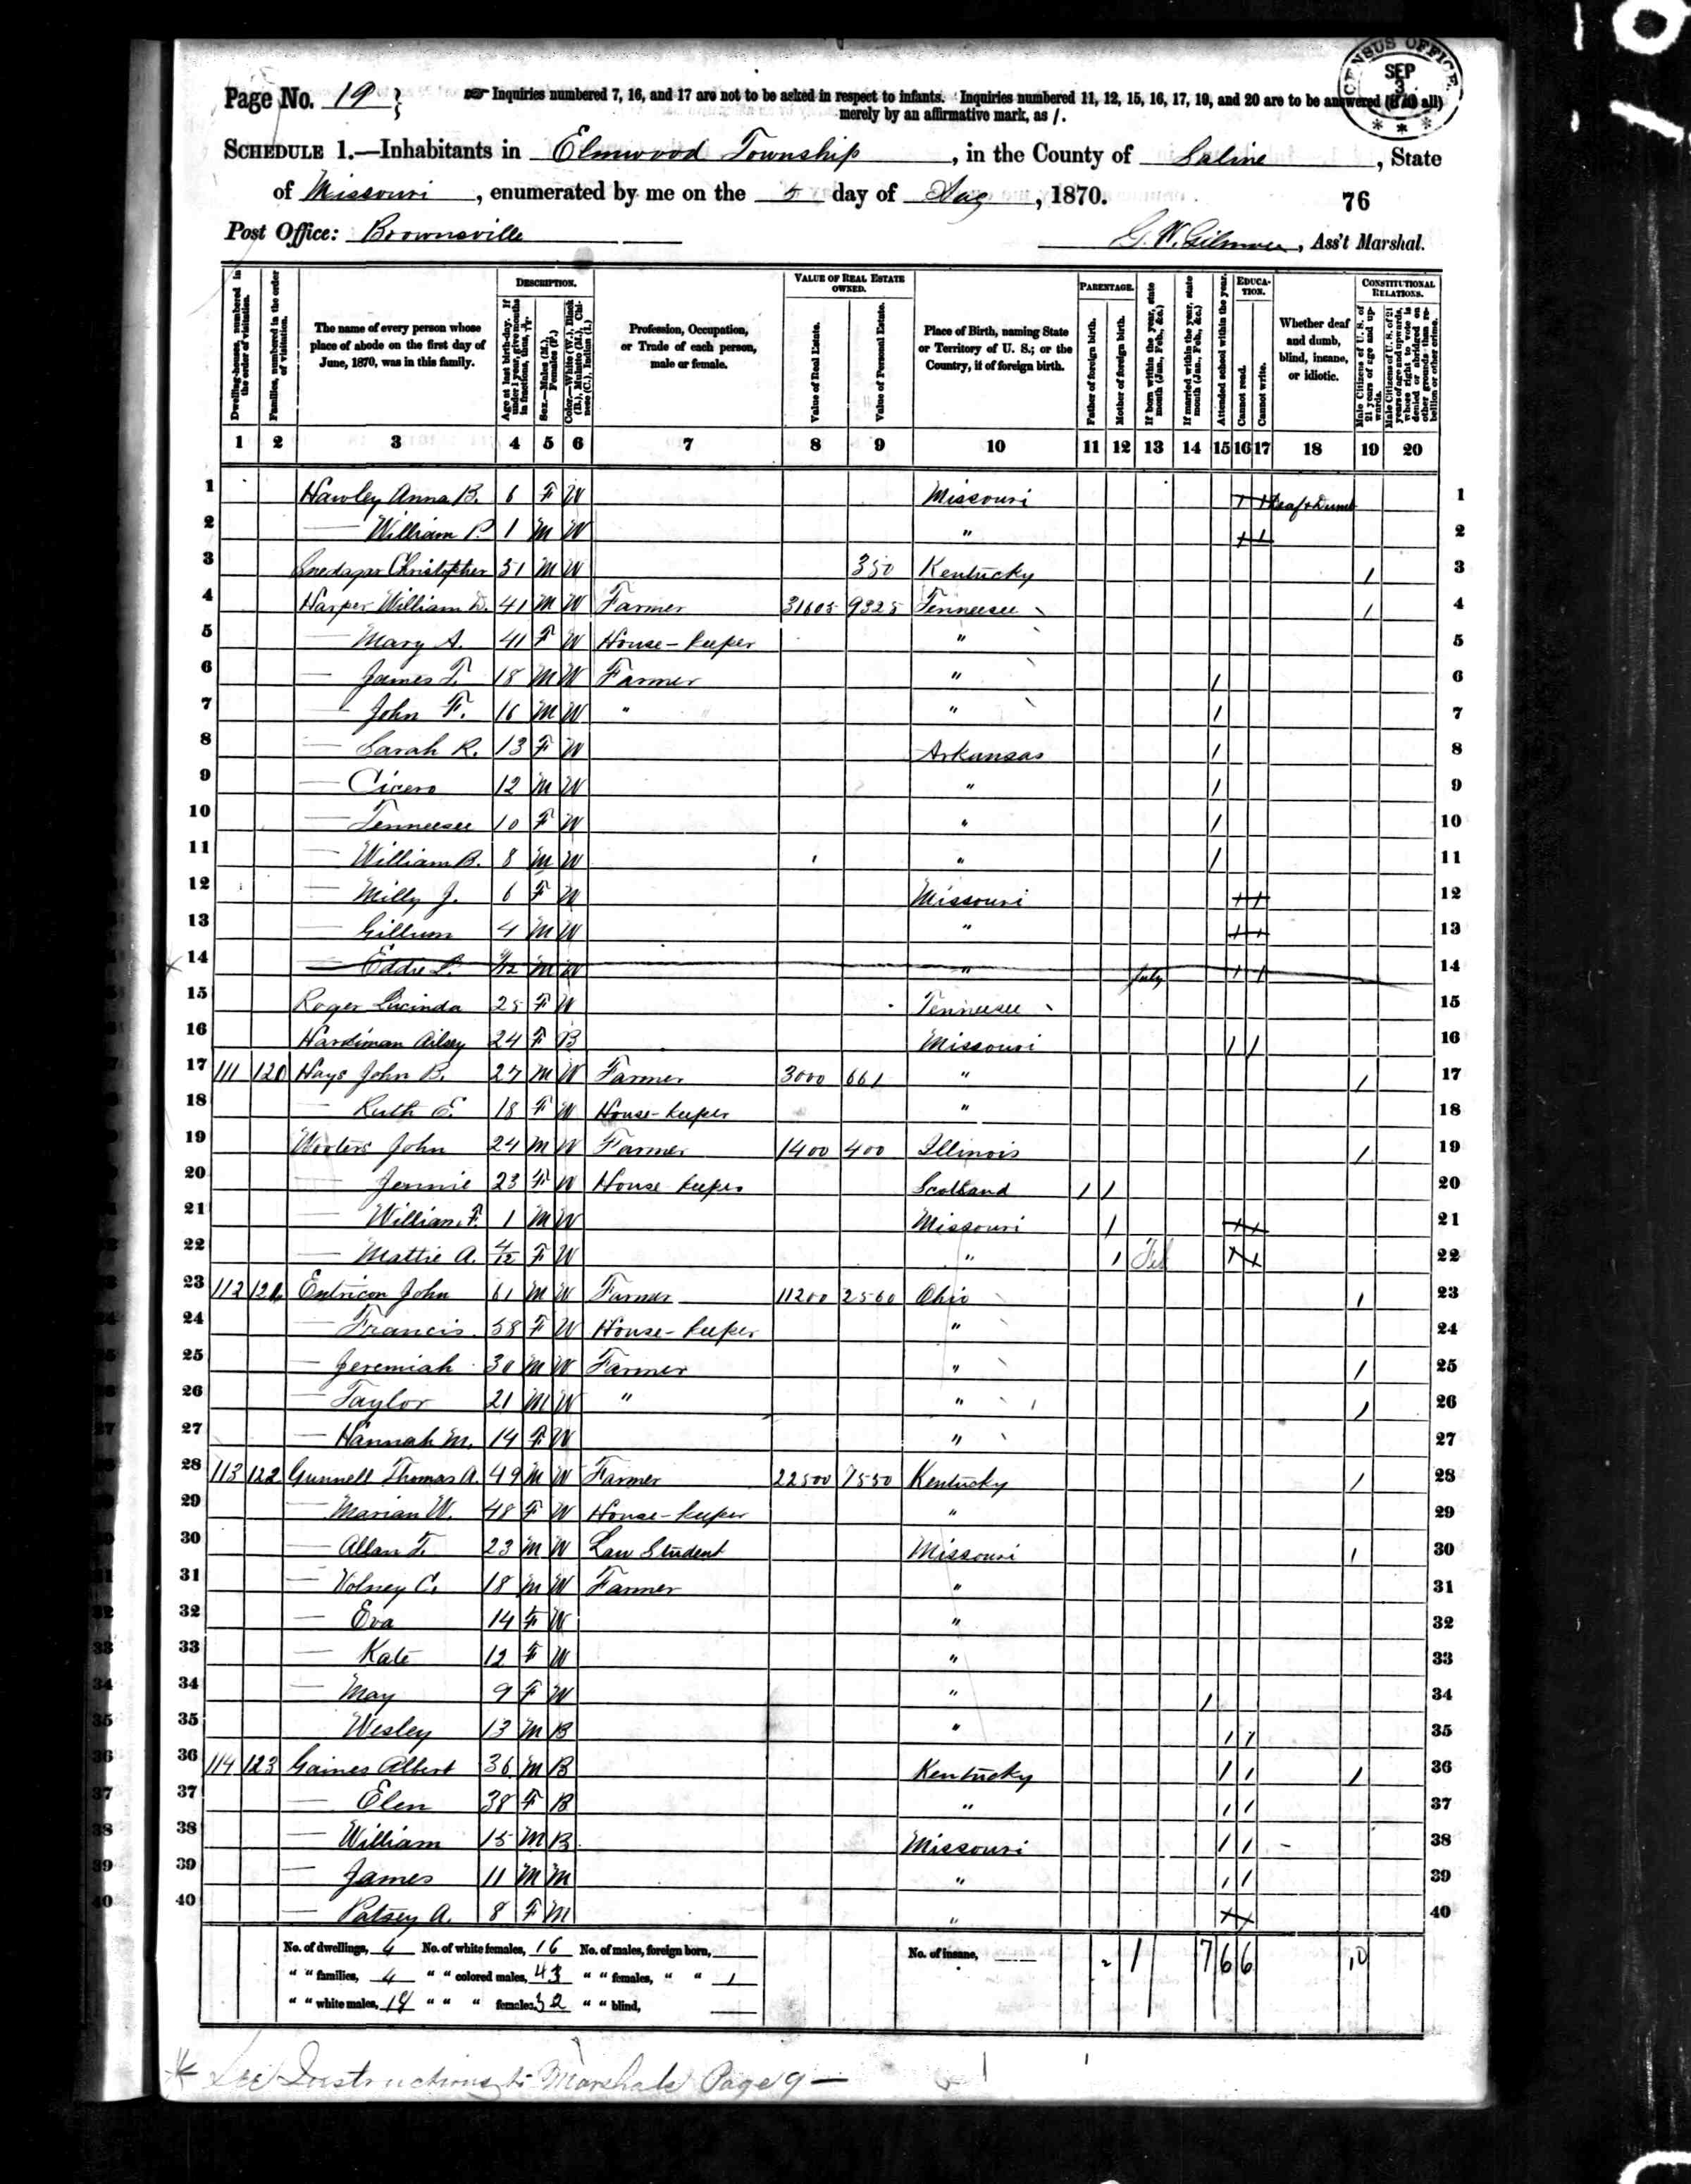 CENSUS OFFICE SEP 3 * * *
Page No. 19 } Inquiries numbered 7, 16, and 17 are not to be asked in respect to infants. Inquiries numbered 11, 12, 15, 16, 17, 19, and 20 are to be answered (if at all)
merely by an affirmative mark, as /.
SCHEDULE 1.—Inhabitants in Elmwood Township, in the County of Saline, State
of Missouri, enumerated by me on the 5 day of Aug, 1870. 76
Post Office: Brownsville G. W. Gilmore, Ass't Marshal.
DESCRIPTION. VALUE OF REAL ESTATE OWNED. PARENTAGE. EDUCATION. CONSTITUTIONAL RELATIONS.
Dwelling-houses, numbered in the order of visitation.
Families, numbered in the order of visitation.
The name of every person whose place of abode on the first day of June, 1870, was in this family.
Age at last birth-day. If under 1 year, give months in fractions, thus, 3/12.
Sex.—Males (M.), Females (F.)
Color.—White (W.), Black (B.), Mulatto (M.), Chinese (C.), Indian (I.)
Profession, Occupation, or Trade of each person, male or female.
Value of Real Estate.
Value of Personal Estate.
Place of Birth, naming State or Territory of U. S.; or the Country, if of foreign birth.
Father of foreign birth.
Mother of foreign birth.
If born within the year, state month (Jan., Feb., &c.)
If married within the year, state month (Jan., Feb., &c.)
Attended school within the year.
Cannot read.
Cannot write.
Whether deaf and dumb, blind, insane, or idiotic.
Male Citizens of U. S. of 21 years of age and upwards.
Male Citizens of U. S. of 21 years of age and upwards, whose right to vote is denied or abridged on other grounds than rebellion or other crime.
1 2 3 4 5 6 7 8 9 10 11 12 13 14 15 16 17 18 19 20
1 Hawley Anna B. 6 F W Missouri / / Deaf & Dumb 1
2 — William P. 1 M W " / / 2
3 Christopher 31 M W 350 Kentucky / 3
4 Harper William D. 41 M W Farmer 31605 9325 Tennessee / 4
5 — Mary A. 41 F W House-keeper " 5
6 — James T. 18 M W Farmer " / 6
7 — John F. 16 M W " " / 7
8 — Sarah R. 13 F W Arkansas / 8
9 — Cicero 12 M W " / 9
10 — Tennessee 10 F W " / 10
11 — William B. 8 M W " / 11
12 — Milly J. 6 F W Missouri / / 12
13 — Gillum 4 M W " / / 13
14 — Eddie L. /12 M W " July / / 14
15 Roger Lucinda 25 F W Tennessee 15
16 Hardiman Ailsey 24 F B Missouri / / 16
17 111 120 Hays John B. 27 M W Farmer 3000 661 " / 17
18 — Ruth E. 18 F W House-keeper " 18
19 Wooters John 24 M W Farmer 1400 400 Illinois / 19
20 — Jennie 23 F W House keeper Scotland / / 20
21 — William F. 1 M W Missouri / / / 21
22 — Mattie A. 4/12 F W " / Feb / / 22
23 112 121 Entricon John 61 M W Farmer 11200 2560 Ohio / 23
24 — Francis 58 F W House-keeper " 24
25 — Jeremiah 30 M W Farmer " / 25
26 — Taylor 21 M W " " / 26
27 — Hannah M. 14 F W " 27
28 113 122 Gunnell Thomas A. 49 M W Farmer 22500 7550 Kentucky / 28
29 — Marian W. 48 F W House-keeper " 29
30 — Allan T. 23 M W Law Student Missouri / 30
31 — Volney C. 18 M W Farmer " 31
32 — Eva 14 F W " 32
33 — Kate 12 F W " 33
34 — May 9 F W " / 34
35 — Wesley 13 M B " / / 35
36 114 123 Gaines Albert 36 M B Kentucky / / / 36
37 — Elen 38 F B " / / 37
38 — William 15 M B Missouri / / 38
39 — James 11 M M " / / 39
40 — Patsey A. 8 F M " / / 40
No. of dwellings, 4 No. of white females, 16 No. of males, foreign born, No. of insane, 2 1 7 6 6 10
" " families, 4 " " colored males, 43 " " females, " " 1
" " white males, " " " females, 32 " " blind,
* See Instructions to Marshals Page 9 —